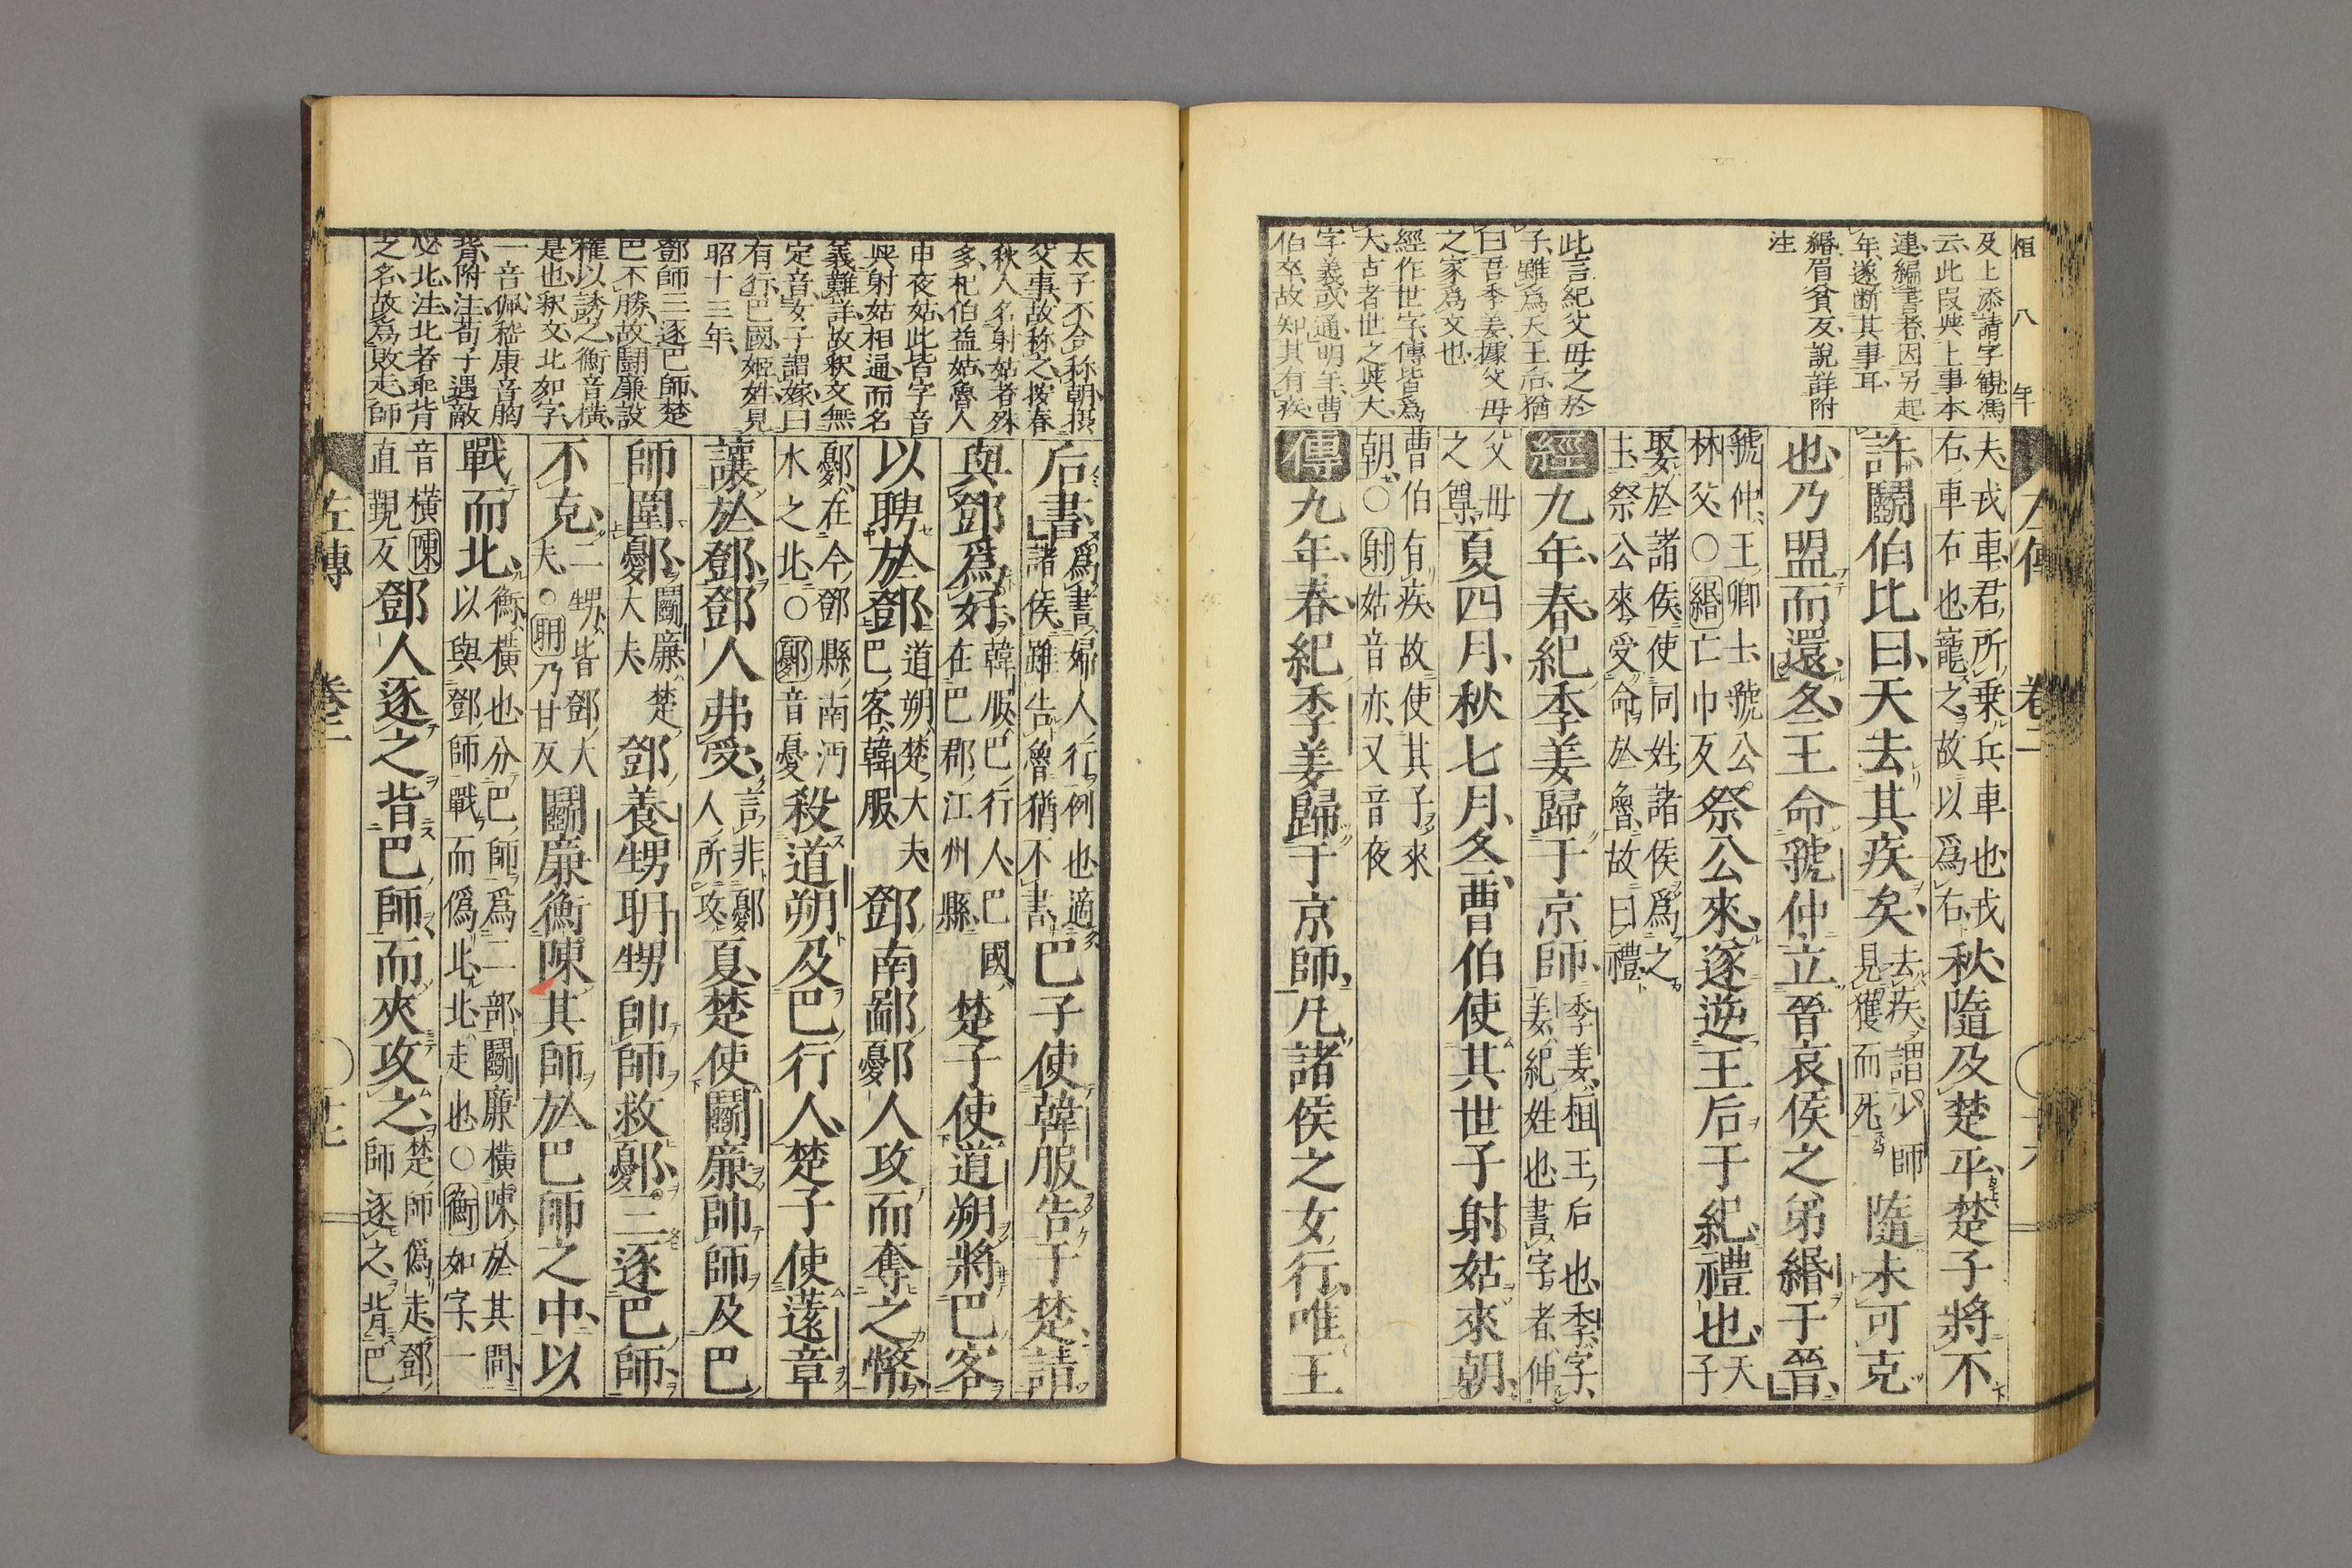 桓 八 年
及上添請字観馮
云此段與上事本
連編書者因另起
年遂断其事耳
緡眉貧反說詳附
注
此言紀父毋之於
子雖爲天王后猶
曰吾季姜據父毋
之家爲文也
經作世字傳皆爲
大古者世之與大
字義或通明年曹
伯卒故知其有疾
左傳 卷二
夫戎車君所乗兵車也戎
右車右也寵之故以爲右秋隨及楚平楚子將不
許鬭伯比曰天去其疾矣去疾謂少師
見獲而死隨未可克
也乃盟而還冬王命虢仲立晉哀侯之弟緡于晉
虢仲王卿士虢公
林父○緡亡巾反祭公來遂逆王后于紀禮也天
子
娶於諸侯使同姓諸侯爲之
主祭公來受命於魯故曰禮
經九年春紀季姜歸于京師季姜桓王后也季字
姜紀姓也書字者伸
父毋
之尊夏四月秋七月冬曹伯使其世子射姑來朝
曹伯有疾故使其子來
朝○射姑音亦又音夜
傳九年春紀季姜歸于京師凡諸侯之女行唯王
太子不合称朝摂
父事故称之按春
秋人名射姑者殊
多杞伯益姑魯人
申夜姑此皆字音
與射姑相通而名
義難詳故釈文無
定音女子謂嫁曰
有行巴國姬姓見
昭十三年
鄧師三逐巴師楚
巴不勝故鬭廉設
權以誘之衡音橫
是也釈文北如字
一音佩嵆康音胷
背附注荀子遇敵
必北注北者乖背
之名故爲敗走師
后書爲書婦人行例也適
諸侯雖告魯猶不書巴子使韓服告于楚請
與鄧爲好韓服巴行人巴國
在巴郡江州縣楚子使道朔將巴客
以聘於鄧道朔楚大夫
巴客韓服鄧南鄙鄾人攻而奪之幣
鄾在今鄧縣南沔
水之北○鄾音憂殺道朔及巴行人楚子使薳章
讓於鄧鄧人弗受言非鄾
人所攻夏楚使鬭廉帥師及巴
師圍鄾鬭廉楚
大夫鄧養甥聃甥帥師救鄾三逐巴師
不克二甥皆鄧大
夫○聃乃甘反鬭廉衡陳其師於巴師之中以
戰而北衡橫也分巴師爲二部鬭廉橫陳於其間
以與鄧師戰而僞北北走也○衡如字一
音橫陳
直覲反鄧人逐之背巴師而夾攻之楚師僞走鄧
師逐之背巴
左傳 卷二